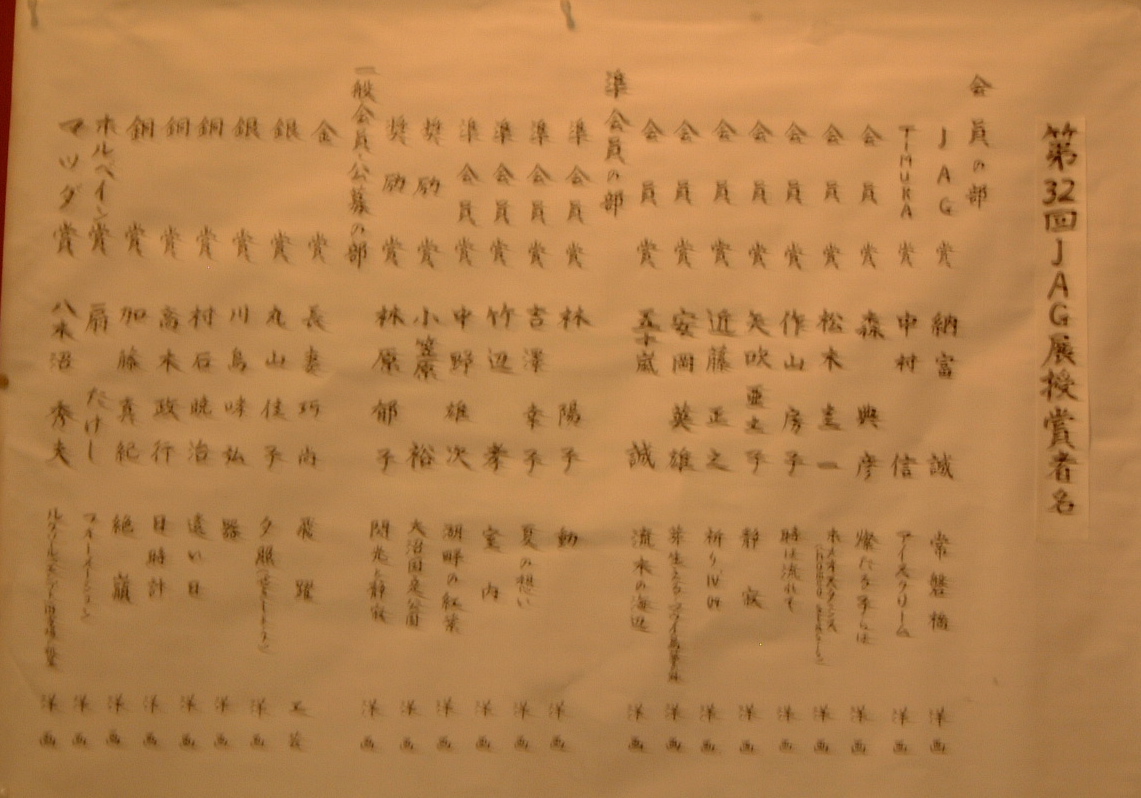 第32回JAG展授賞者名
会員の部
JAG賞 納富 誠 常磐橋 洋画
TIMUKA賞 中村 信 アイスクリーム 洋画
会員賞 森 典彦 燦たる子らは 洋画
会員賞 松木 圭一 洋画
会員賞 作山 房子 時は流れて 洋画
会員賞 矢吹 亜土子 静寂 洋画
会員賞 近藤 正之 祈り 洋画
会員賞 安岡 英雄 洋画
会員賞 五十嵐 誠 流木の海辺 洋画
準会員の部
準会員賞 林 陽子 動 洋画
準会員賞 吉澤 幸子 夏の想い 洋画
準会員賞 竹辺 孝 室内 洋画
準会員賞 中野 雄次 湖畔の紅葉 洋画
奨励賞 小笠原 裕 洋画
奨励賞 林原 郁子 閃光と静寂 洋画
一般会員・公募の部
金賞 長妻 飛躍 工芸
銀賞 丸山 佳子 夕照 洋画
銀賞 川島 味弘 器 洋画
銅賞 村石 暁治 遠い日 洋画
銅賞 高木 政行 日時計 洋画
銅賞 加藤 真紀 絶巓 洋画
ホルベイン賞 扇 たけし 洋画
マツダ賞 八木沼 秀夫 洋画